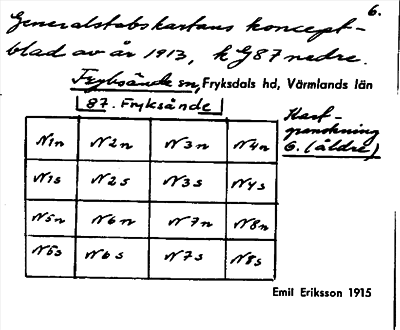 6.
Generalstabskartans koncept-
blad av år 1913, k G87 nedre.
Fryksände sn, Fryksdals hd, Värmlands län
87. Fryksände
Kart-
granskning
G. (äldre)
N1n N2n N3n N4n
N1s N2s N3s N4s
N5n N6n N7n N8n
N5s N6s N7s N8s
Emil Eriksson 1915